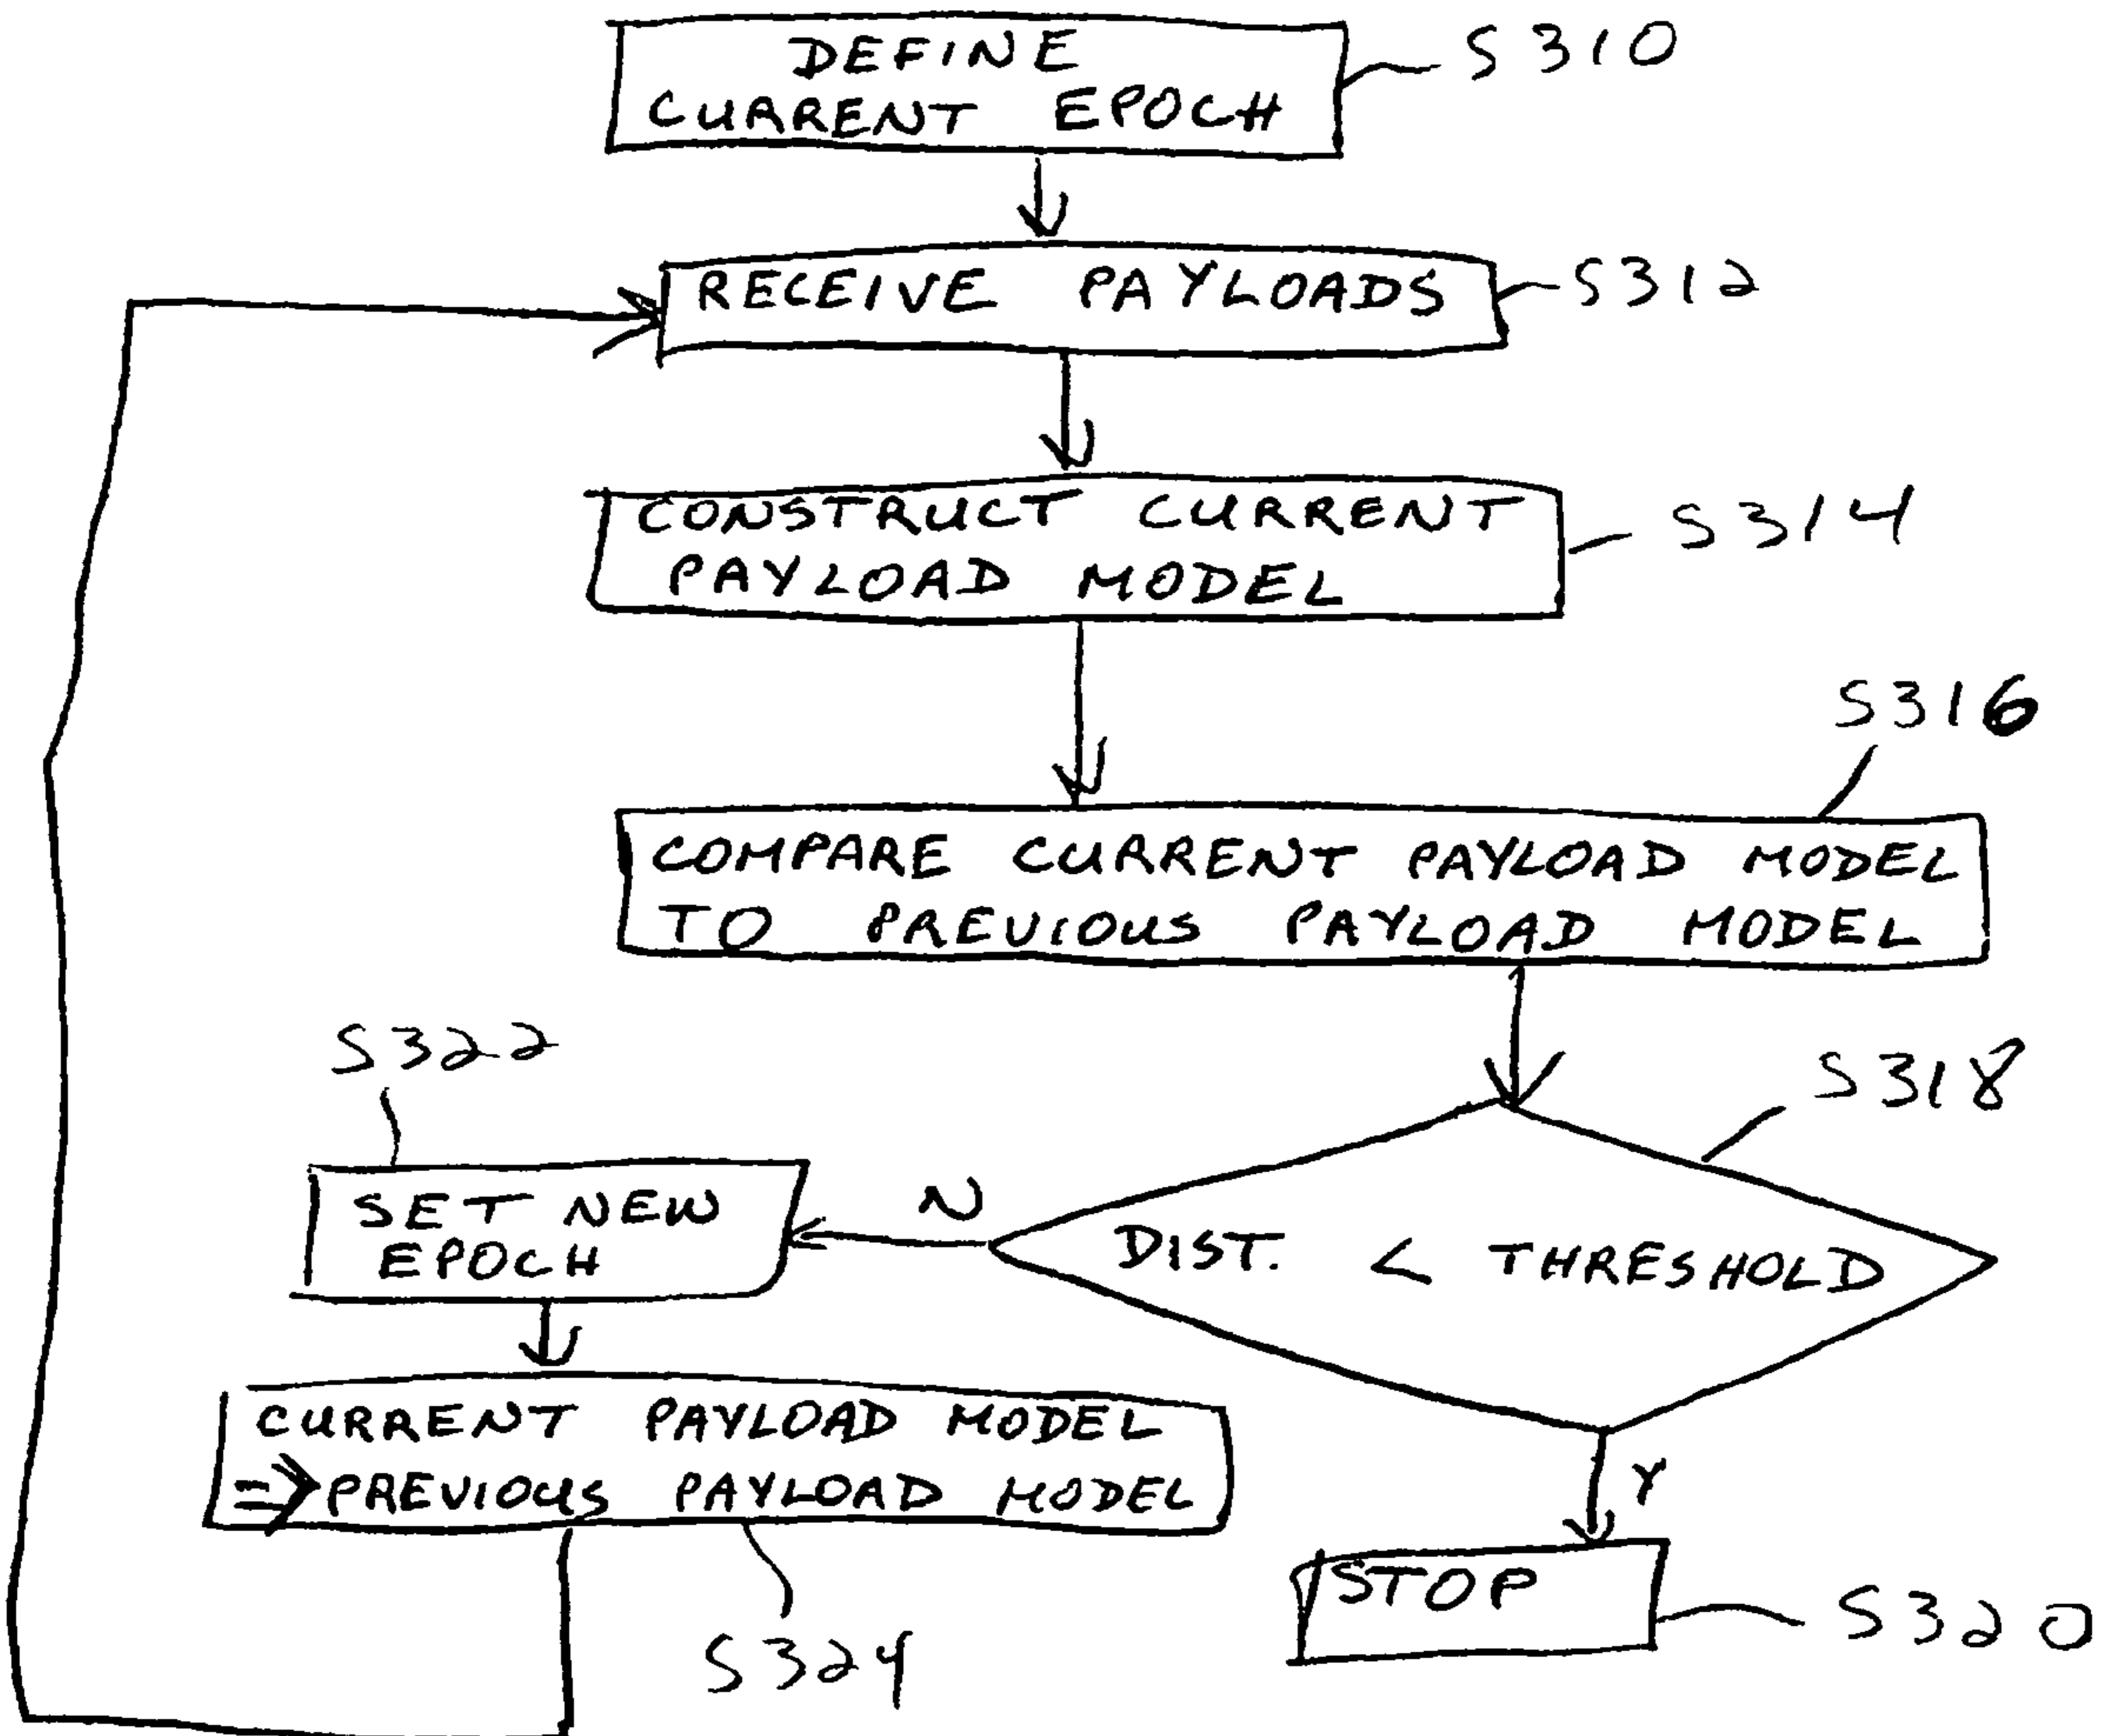 DEFINE
CURRENT EPOCH
S310
RECEIVE PAYLOADS
S312
CONSTRUCT CURRENT
PAYLOAD MODEL
S314
S316
COMPARE CURRENT PAYLOAD MODEL
TO PREVIOUS PAYLOAD MODEL
S322
S318
SET NEW
EPOCH
N
DIST. < THRESHOLD
CURRENT PAYLOAD MODEL
⇒ PREVIOUS PAYLOAD MODEL
Y
STOP
S320
S324